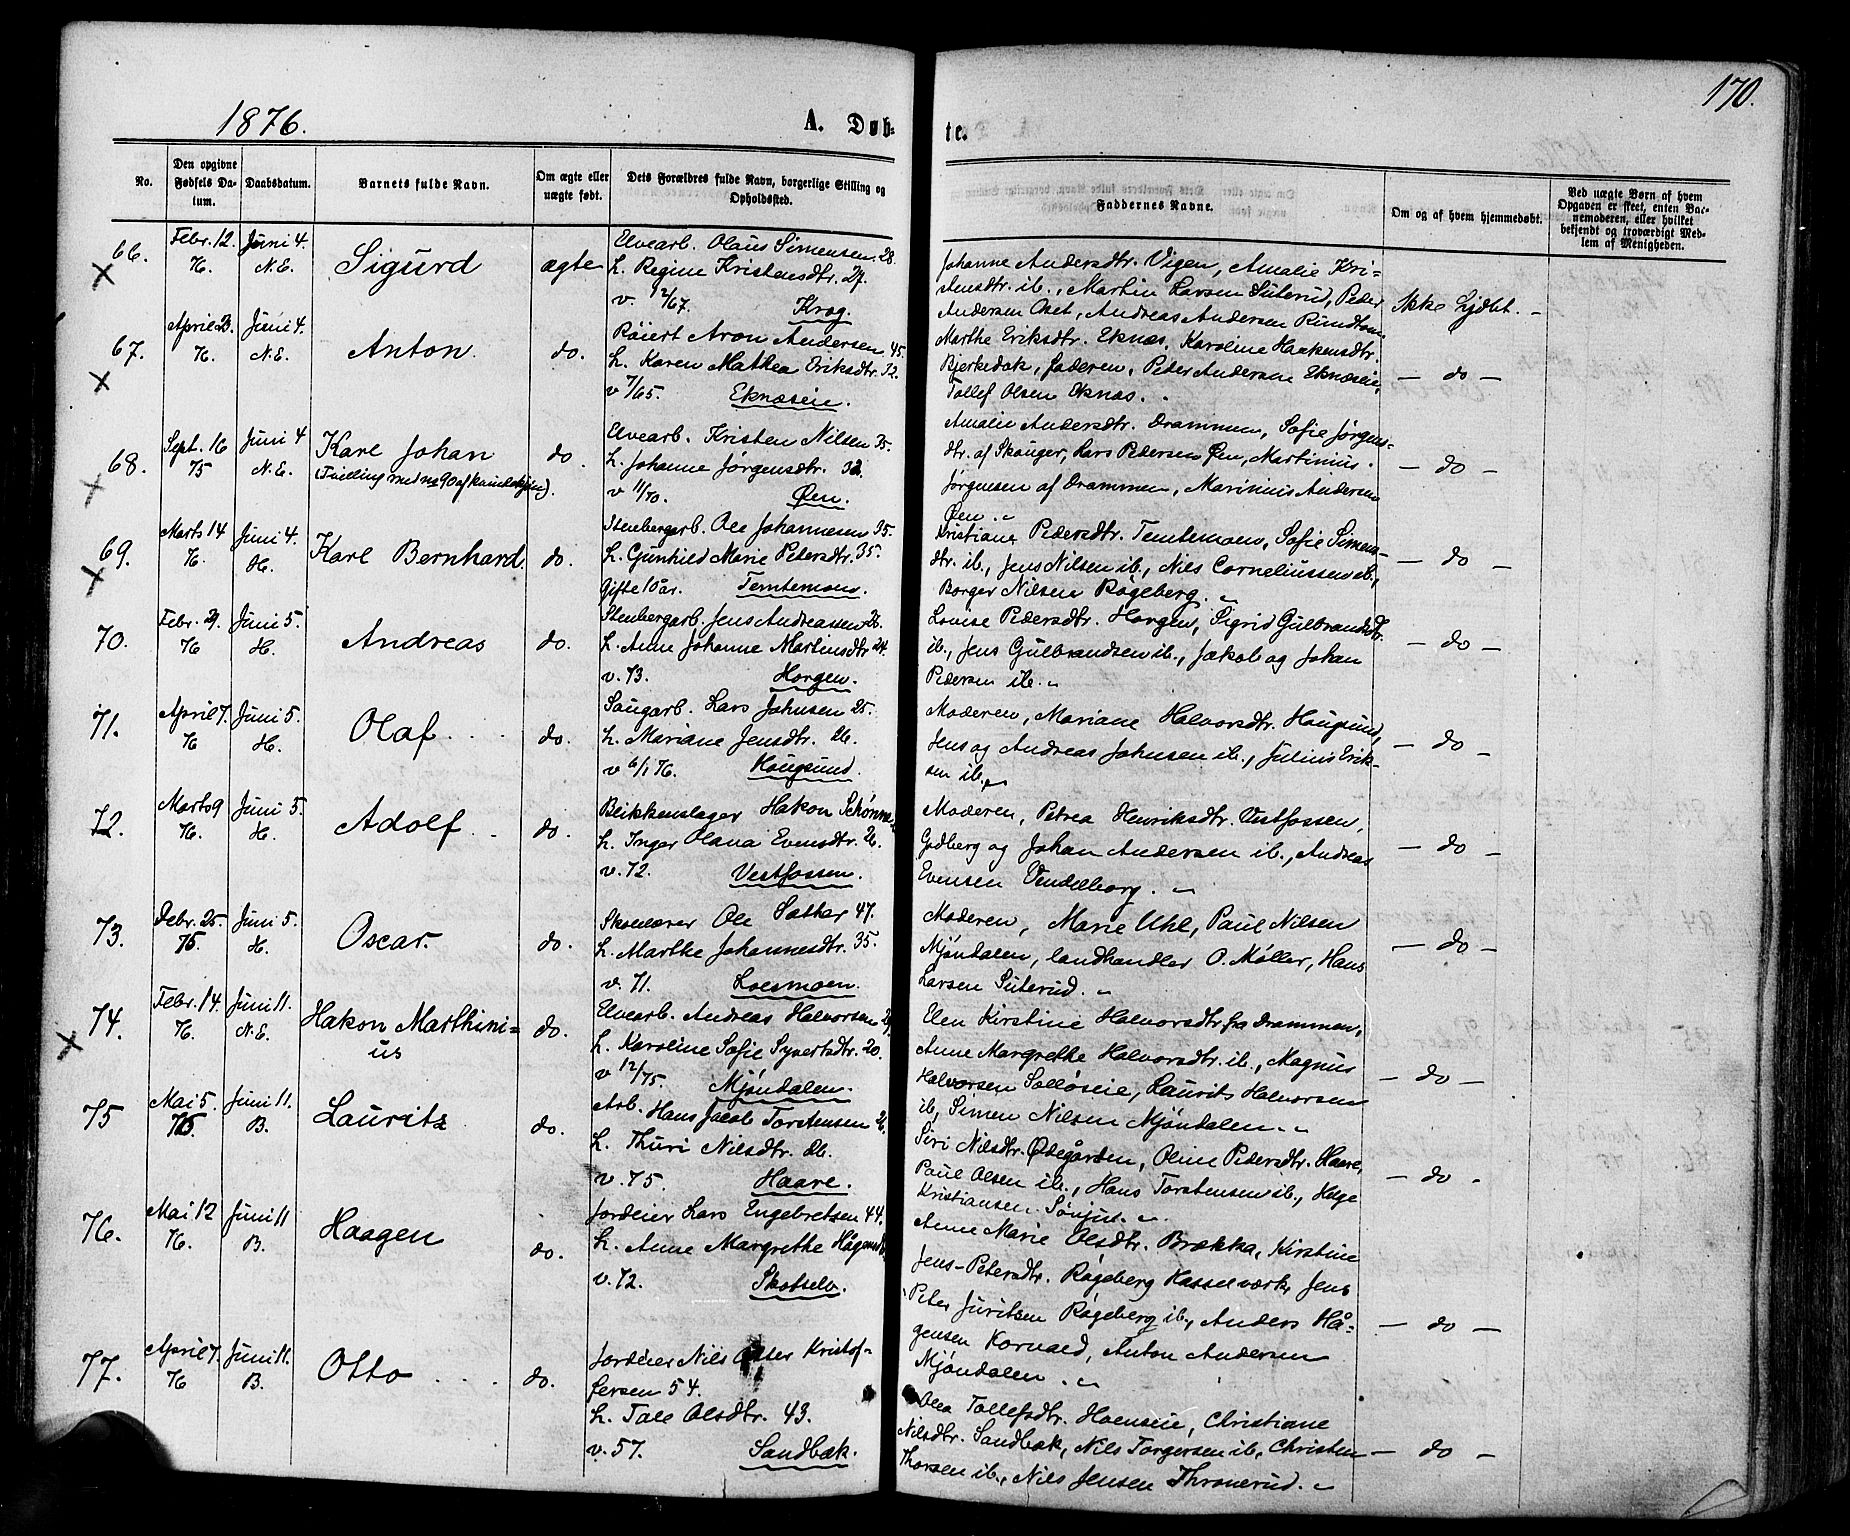 170.
1876.
A. Døb-
te.
No.
Den opgivne
Fødsels Da-
tum.
Daabsdatum.
Barnets fulde Navn.
Om ægte eller
uægte født.
Dets Forældres fulde Navn, borgerlige Stilling og
Opholdssted.
Faddernes Navne.
Om og af hvem hjemmedøbt.
Ved uægte Børn af hvem
Opgaven er skeet, enten Bar-
nemoderen, eller hvilket
bekjendt og troværdigt Med-
lem af Menigheden.
66.
Febr. 12.
76.
Juni 4.
N.E.
Sigurd
ægte
Elvearb. Olaus Simensen. 28.
h. Regine Kristensdtr. 27.
v. 12/67. Krog.
Johanne Andersdtr. Vigen, Amalie Kri-
stensdtr. ib., Martin Larsen Suterud, Peder
Andersen Oset, Andreas Andersen Rundtom
Ikke Hjdbt. -
67.
April 23.
76.
Juni 4.
N.E.
Anton.
do.
Røiert Aron Andersen 45.
h. Karen Mathea Eriksdtr. 32.
v 7/65. Eknæseie.
Marthe Eriksdtr. Eknæs, Karoline Haakensdtr.
Bjerkedok, faderen, Peder Andersen Eknæseie,
Tollef Olsen Eknæs.
- do -
68.
Sept. 16
75
Juni 4
N.E.
Karl Johan
(Tvilling med no 90 af kvindekjøn).
do.
Elvearb. Kristen Nilsen 35.
h. Johanne Jørgensdtr. 32.
v 11/70. Øen.
Amalie Andersdtr. Drammen, Sofie Jørgens-
dtr. af Skauger, Lars Pedersen Øen, Martinius
Jørgensen af Drammen, Marinius Andersen
Øen.
- do -
69.
Marts 14
76.
Juni 4.
H.
Karl Bernhard
do.
Stenbergarb. Ole Johannesen 35.
h. Gunhild Marie Petersdtr. 35.
Gifte 10 år. Temtemoen.
Kristiane Pedersdtr. Temtemoen, Sofie Simens-
dtr. ib., Jens Nilsen ib., Nils Corneliussen ib.,
Borger Nilsen Røgeberg.
- do -
70.
Febr. 29.
76
Juni 5.
H.
Andreas
do.
Stenbergarb. Jens Andreassen 26.
h. Anne Johanne Martinsdtr 24.
v. 73. Horgen.
Lovise Pedersdtr. Horgen, Sigrid Gulbrandsdtr.
ib., Jens Gulbrandsen ib., Jakob og Johan
Pedersen ib.
- do -
71.
April 7.
76
Juni 5.
H.
Olaf
do.
Saugarb. Lars Johnsen 25.
h. Mariane Jensdtr. 26.
v 6/1 76. Hougsund.
Moderen, Mariane Halvorsdtr. Hougsund,
Jens og Andreas Johnsen ib., Julius Erik-
sen ib.
- do -
72.
Marts 9
76.
Juni 5.
H.
Adolf
do.
Blikkenslager Hakon
h. Inger Olava Evensdtr. 26.
v. 72. Vestfossen.
Moderen, Petrea Henriksdtr. Vestfossen,
Godberg og Johan Andersen ib., Andreas
Evensen Vendelborg.
- do -
73.
Febr. 25
76.
Juni 5.
H.
Oscar.
do.
Skolelærer Ole Sæther 47.
h. Marthe Johannesdtr. 35.
v. 71. Loesmoen.
Moderen, Marie Uhl, Paul Nilsen
Mjøndalen, landhandler O. Møller, Hans
Larsen Suterud.
- do -
74.
Febr. 14.
76.
Juni 11.
N.E.
Hakon Marthini-
us
do.
Elvearb. Andreas Halvorsen
h. Karoline Sofie Syvertsdtr. 20.
v 12/75. Mjøndalen.
Elen Kirstine Halvorsdtr fra Drammen,
Anne Margrethe Halvorsdtr. ib., Magnus
Halvorsen Solløseie, Laurits Halvorsen
ib., Simen Nilsen Mjøndalen.
- do -
75
Mai 5.
76
Juni 11.
B.
Lauritz
do.
Arb. Hans Jacob Torstensen
h. Thuri Nilsdtr. 26.
v. 75. Haare.
Siri Nilsdtr. Ødegården, Oline Pedersdtr. Haare,
Paul Olsen ib., Hans Torstensen ib., Helge
Kristiansen
- do -
76.
Mai 12
76.
Juni 11
B.
Haagen
do.
Jordeier Lars Engebretsen 44.
h. Anne Margrethe
v. 72. Skotselv.
Anne Marie Olsdtr. Brækka, Kirstine
Jens-Petersdtr. Røgeberg Hasselværk, Jens
Peter Juritsen Røgeberg ib., Anders Hå-
gensen Kornæd, Anton Andersen
Mjøndalen.
- do -
77.
April 7.
76
Juni 11.
B.
Otto
do.
Jordeier Nils Kristof-
fersen 54.
h. Tale Olsdtr. 43.
v. 57. Sandbæk.
Olea Tollefsdtr. Hoenseie, Christiane
Nilsdtr. Sandbæk, Nils Torgersen ib., Christen
Thorsen ib., Nils Jensen Thronerud.
- do -